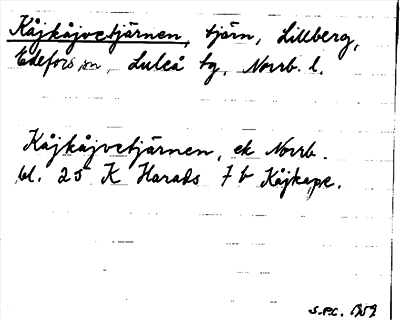 Kåjkåjvetjärnen, tjärn, Lillberg,
Edefors sn, Luleå tg, Norrb. l.
Kåjkåjvetjärnen, ek Norrb.
bl. 25 K Harads 7 b Kåjkape.
1959